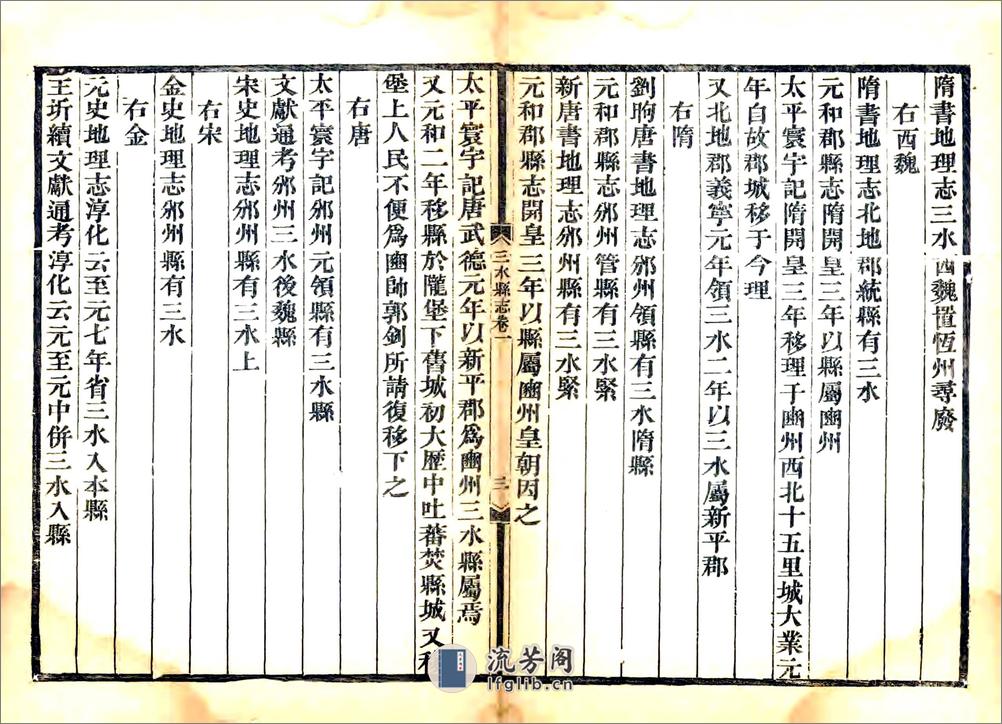 隋書地理志三水西魏置恆州尋廢
右西魏
隋書地理志北地郡統縣有三水
元和郡縣志隋開皇三年以縣屬豳州
太平寰宇記隋開皇三年移理于豳州西北十五里城大業元
年自故郡城移于今理
又北地郡義寧元年領三水二年以三水屬新平郡
右隋
劉昫唐書地理志邠州領縣有三水隋縣
元和郡縣志邠州管縣有三水緊
新唐書地理志邠州縣有三水緊
元和郡縣志開皇三年以縣屬豳州皇朝因之
三水縣志卷一
三
太平寰宇記唐武德元年以新平郡爲豳州三水縣屬焉
又元和二年移縣於隴堡下舊城初大歷中吐蕃焚縣城又移
堡上人民不便爲豳帥郭釗所請復移下之
右唐
太平寰宇記邠州元領縣有三水縣
文獻通考邠州三水後魏縣
宋史地理志邠州縣有三水上
右宋
金史地理志邠州縣有三水
右金
元史地理志淳化云至元七年省三水入本縣
王圻續文獻通考淳化云元至元中併三水入縣
流芳阁
lfglib.cn